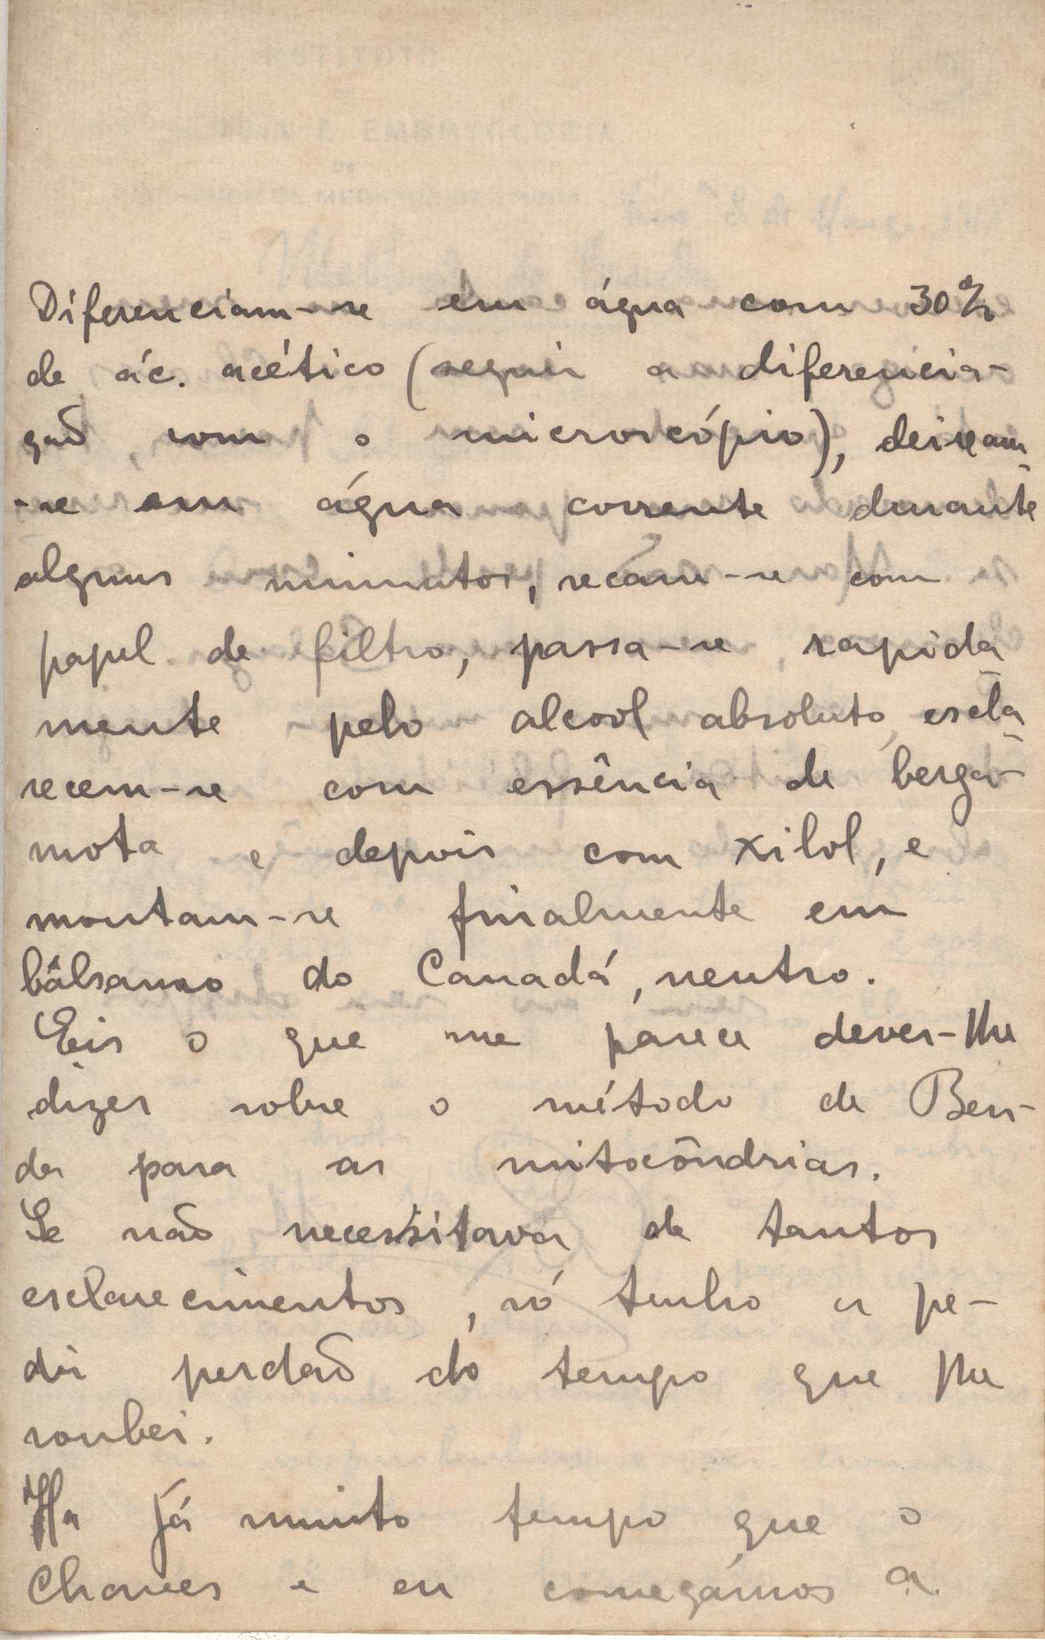 Diferenciam-se em água com 30%
de ác. acético (seguir a diferencia-
ção, com o microscópio), deixam-
-se em água corrente durante
alguns minutos, secam-se com
papel de filtro, passa-se rapida-
mente pelo alcool absoluto, escla-
recem-se com essência de berga-
mota e depois com xilol, e
montam-se finalmente em
bâlsamo do Canadá, neutro.
Eis o que me parece dever-lhe
dizer sobre o método de Ben-
da para as mitocôndrias.
Se não necessitava de tantos
esclarecimentos, só tenho a pe-
dir perdão do tempo que lhe
roubei.
Ha já muito tempo que o
Chaves e eu começámos a